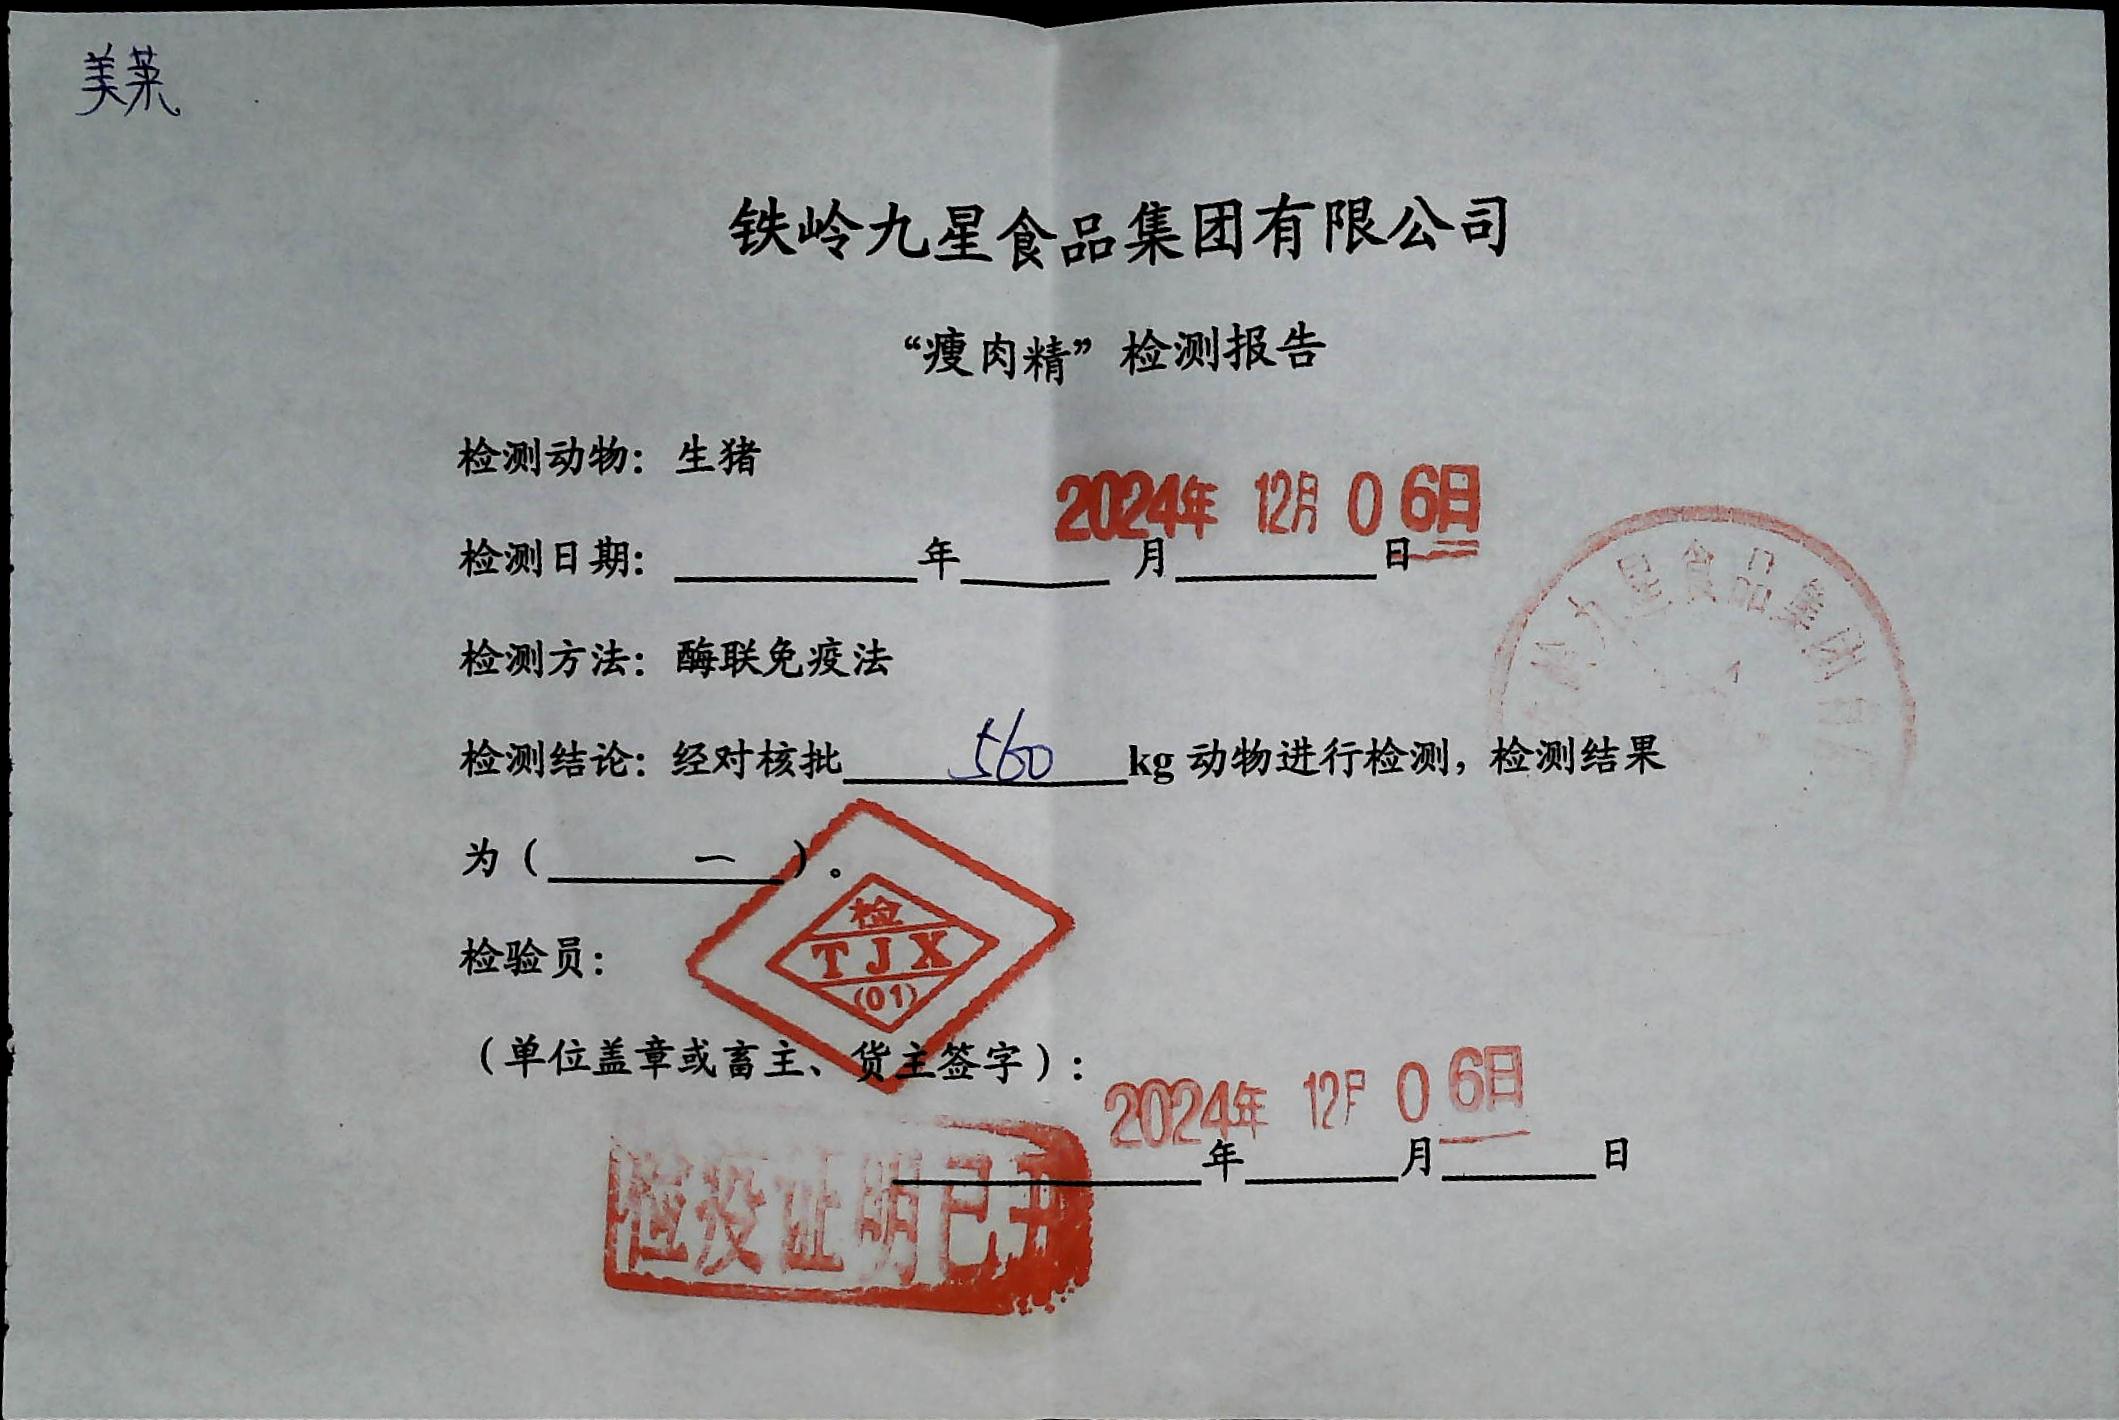 美菜
铁岭九星食品集团有限公司
“瘦肉精”检测报告
检测动物：生猪
2024年 12月 06日
检测日期：______年____月______日
检测方法：酶联免疫法
检测结论：经对核批 560 kg 动物进行检测，检测结果
为（ 一 ）。
检验员：
检
TJX
(01)
（单位盖章或畜主、货主签字）：
2024年 12月 06日
______年____月____日
检疫证明已开
岭九星食品集团